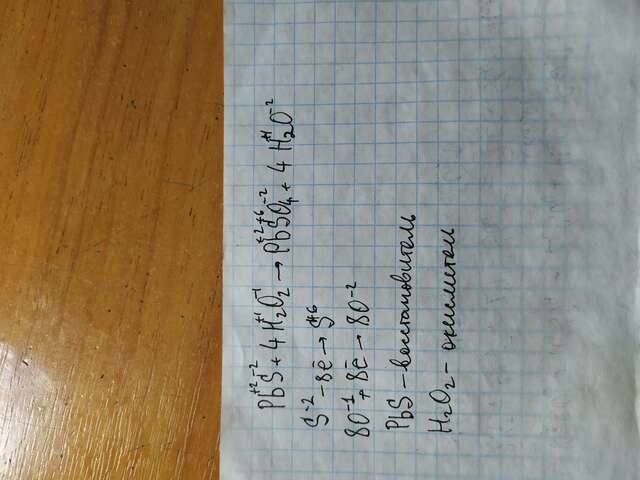 Pb⁺²S⁻² + 4H⁺¹₂O⁻¹₂ → Pb⁺²S⁺⁶O⁻²₄ + 4H⁺¹₂O⁻²
S⁻² - 8ē → S⁺⁶
8O⁻¹ + 8ē → 8O⁻²
PbS - восстановитель
H₂O₂ - окислитель